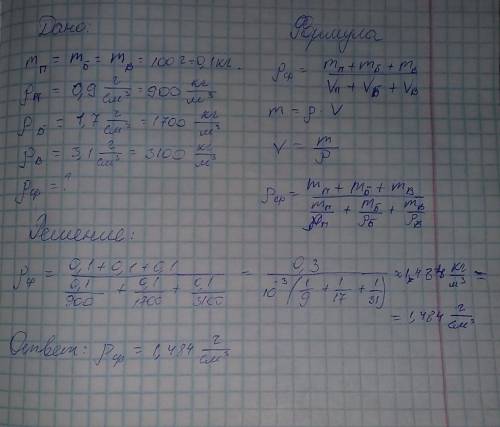 Дано:
m_п = m_б = m_в = 100г = 0,1кг.
ρ_п = 0,9 г/см³ = 900 кг/м³
ρ_Б = 1,7 г/см³ = 1700 кг/м³
ρ_В = 3,1 г/см³ = 3100 кг/м³
ρ_ф = ?
Формула
ρ_ф = (m_п + m_б + m_в)/(V_п + V_Б + V_В)
m = ρ · V
V = m/ρ
ρ_ф = (m_п + m_б + m_в)/(m_п/ρ_п + m_б/ρ_Б + m_в/ρ_В)
Решение:
ρ_ф = (0,1 + 0,1 + 0,1)/(0,1/900 + 0,1/1700 + 0,1/3100) = 0,3/(10⁻³(1/9 + 1/17 + 1/31)) ≈ кг/м³ =
= 1,484 г/см³
Ответ: ρ_ф = 1,484 г/см³